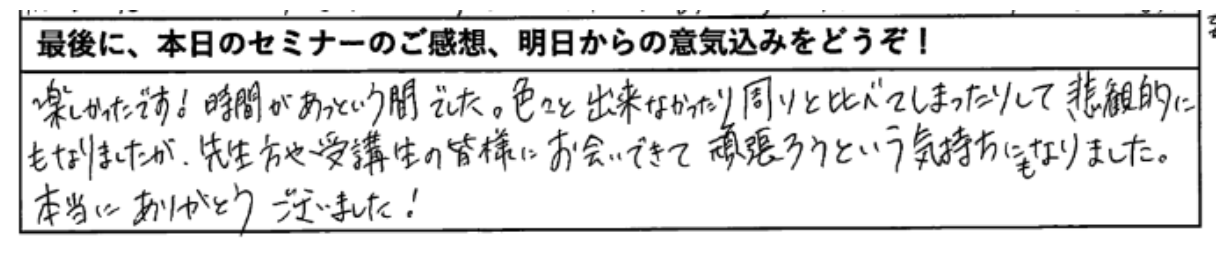 最後に、本日のセミナーのご感想、明日からの意気込みをどうぞ！
楽しかったです！時間があっという間でした。色々と出来なかったり周りと比べてしまったりして悲観的に
もなりましたが、先生方や受講生の皆様にお会いできて頑張ろうという気持ちにもなりました。
本当にありがとうございました！